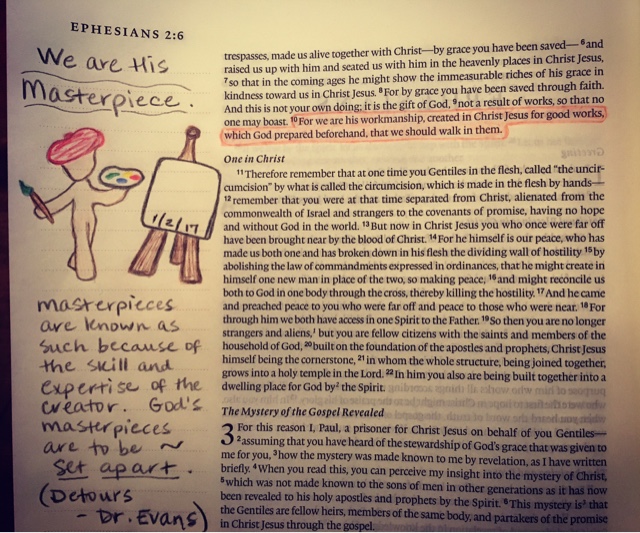 EPHESIANS 2:6
We are His
Masterpiece.
1/2/17
masterpieces
are known as
such because of
the skill and
expertise of the
creator. God's
masterpieces
are to be ~
Set apart.
(Detours
- Dr. Evans)
trespasses, made us alive together with Christ—by grace you have been saved— 6and
raised us up with him and seated us with him in the heavenly places in Christ Jesus,
7so that in the coming ages he might show the immeasurable riches of his grace in
kindness toward us in Christ Jesus. 8For by grace you have been saved through faith.
And this is not your own doing; it is the gift of God, 9not a result of works, so that no
one may boast. 10For we are his workmanship, created in Christ Jesus for good works,
which God prepared beforehand, that we should walk in them.
One in Christ
11Therefore remember that at one time you Gentiles in the flesh, called "the uncir-
cumcision" by what is called the circumcision, which is made in the flesh by hands—
12remember that you were at that time separated from Christ, alienated from the
commonwealth of Israel and strangers to the covenants of promise, having no hope
and without God in the world. 13But now in Christ Jesus you who once were far off
have been brought near by the blood of Christ. 14For he himself is our peace, who has
made us both one and has broken down in his flesh the dividing wall of hostility 15by
abolishing the law of commandments expressed in ordinances, that he might create in
himself one new man in place of the two, so making peace, 16and might reconcile us
both to God in one body through the cross, thereby killing the hostility. 17And he came
and preached peace to you who were far off and peace to those who were near. 18For
through him we both have access in one Spirit to the Father. 19So then you are no longer
strangers and aliens,1 but you are fellow citizens with the saints and members of the
household of God, 20built on the foundation of the apostles and prophets, Christ Jesus
himself being the cornerstone, 21in whom the whole structure, being joined together,
grows into a holy temple in the Lord. 22In him you also are being built together into a
dwelling place for God by2 the Spirit.
The Mystery of the Gospel Revealed
3 For this reason I, Paul, a prisoner for Christ Jesus on behalf of you Gentiles—
2assuming that you have heard of the stewardship of God's grace that was given to
me for you, 3how the mystery was made known to me by revelation, as I have written
briefly. 4When you read this, you can perceive my insight into the mystery of Christ,
5which was not made known to the sons of men in other generations as it has now
been revealed to his holy apostles and prophets by the Spirit. 6This mystery is3 that
the Gentiles are fellow heirs, members of the same body, and partakers of the promise
in Christ Jesus through the gospel.